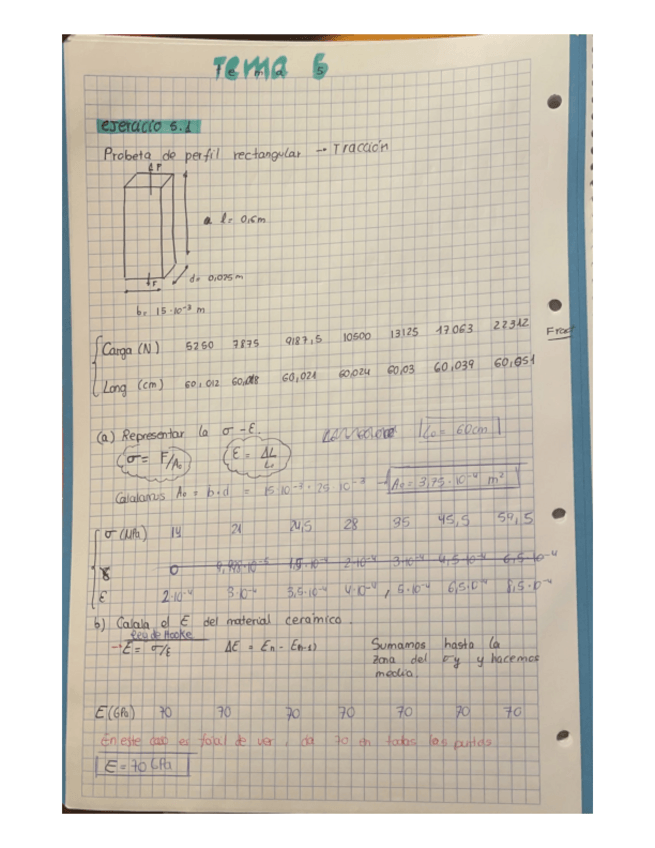 Tema 5
ejercicio 5.1
Probeta de perfil rectangular → Tracción
F
a l = 0,6m
F
d= 0,025 m
b= 15·10⁻³ m
Carga (N) 5250 7875 9187,5 10500 13125 17063 22312 Fract
Long (cm) 60,012 60,018 60,021 60,024 60,03 60,039 60,051
(a) Representar la σ-ε.
L₀ = 60cm
σ = F/A₀
ε = ΔL/L₀
Calculamos A₀ = b·d = 15·10⁻³·25·10⁻³ → A₀ = 3,75·10⁻⁴ m²
σ (MPa) 14 21 24,5 28 35 45,5 59,5
0 2·10⁻⁴ 3·10⁻⁴ 4,5·10⁻⁴ 6,5·10⁻⁴
ε 2·10⁻⁴ 3·10⁻⁴ 3,5·10⁻⁴ 4·10⁻⁴, 5·10⁻⁴ 6,5·10⁻⁴ 8,5·10⁻⁴
b) Calcula el E del material cerámico.
Ley de Hooke
→ E = σ/ε ΔE = En - E(n-1)
Sumamos hasta la
zona del σy y hacemos
media.
E (GPa) 70 70 70 70 70 70 70
En este caso es total de ver, da 70 en todos los puntos
E = 70 GPa